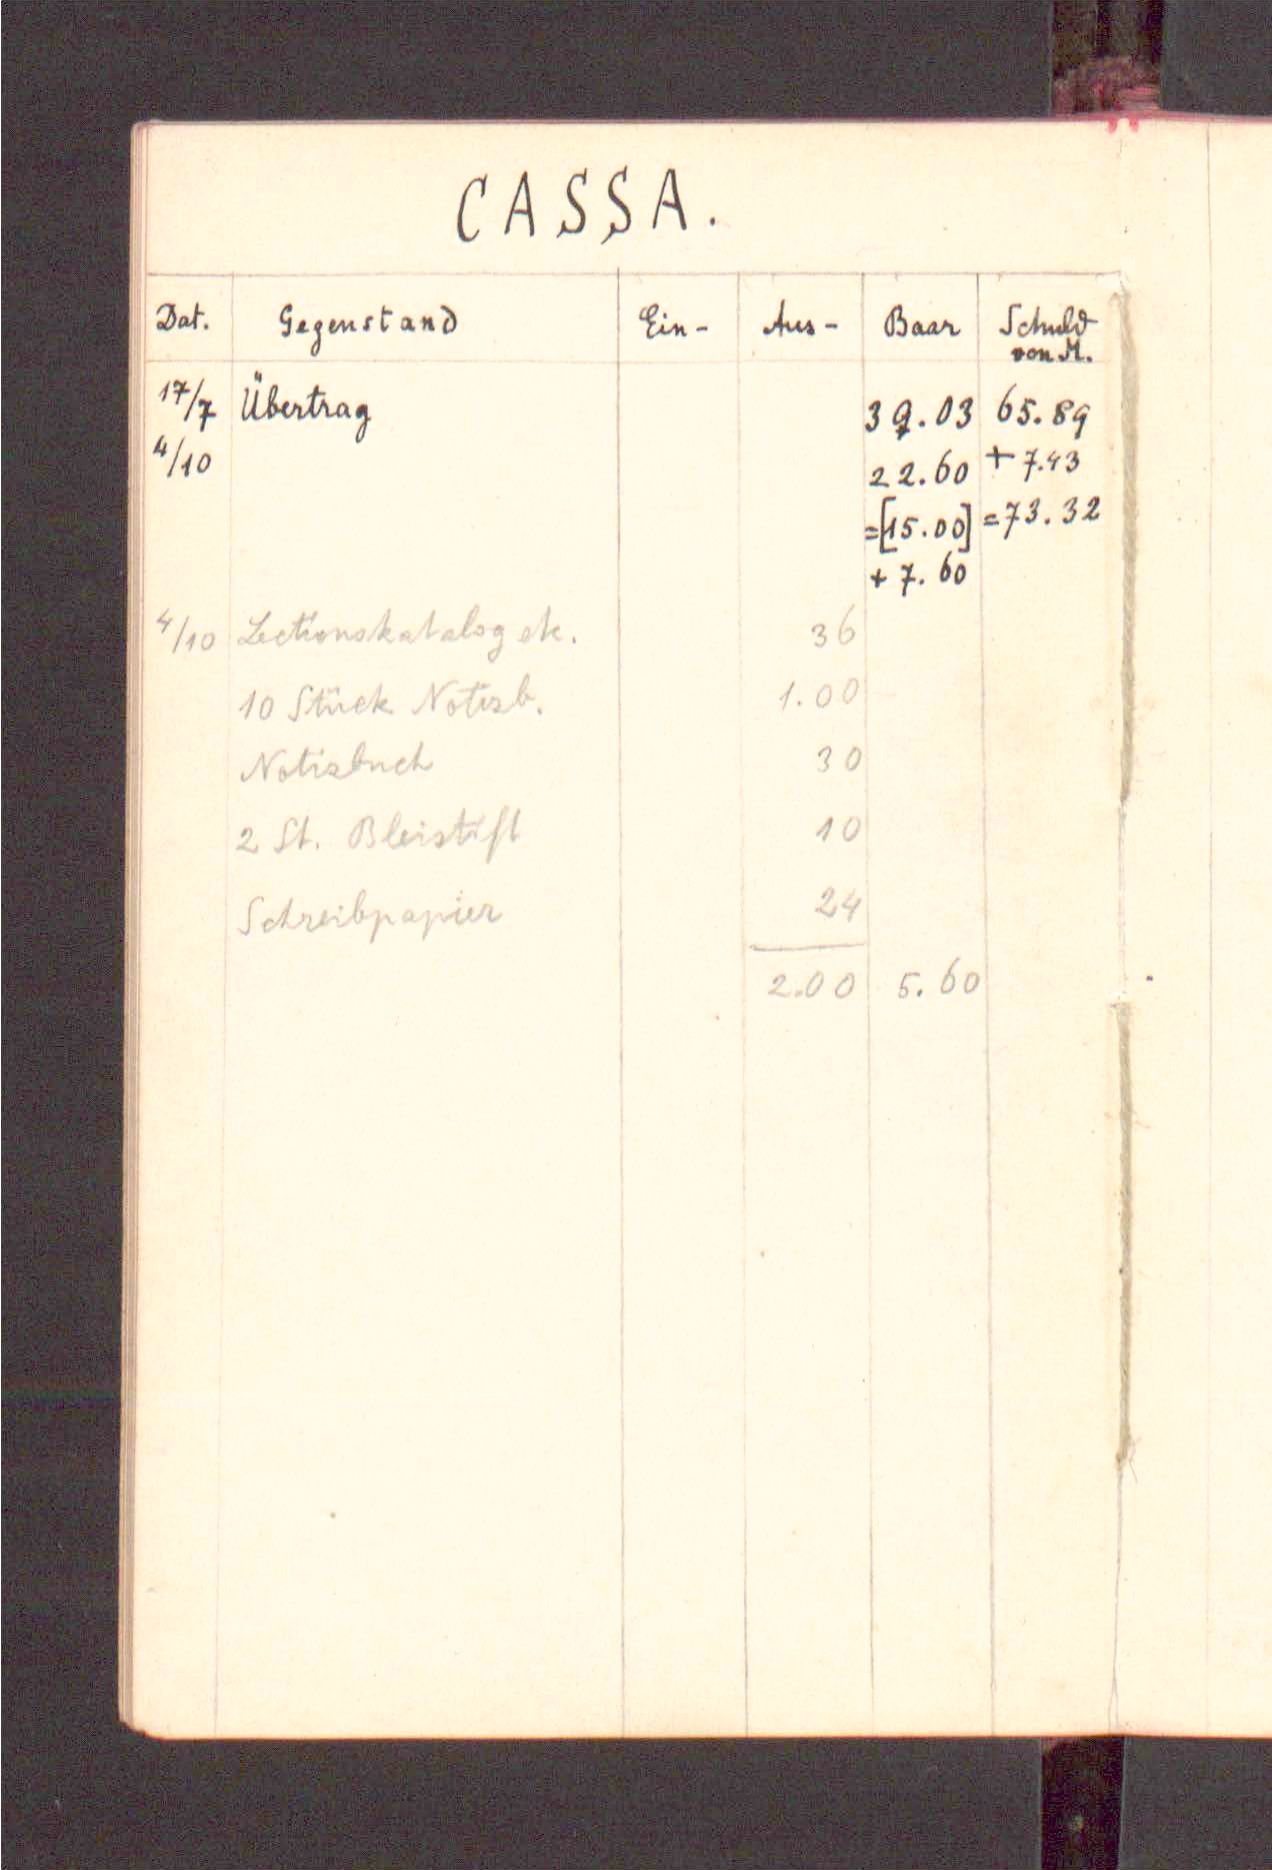 CASSA.
Dat. Gegenstand Ein- Aus- Baar Schuld
von M.
17/7 Übertrag 39.03 65.89
4/10 22.60 + 7.43
=[15.00] =73.32
+ 7.60
4/10 Lectionskatalog etc. 36
10 Stück Notizb. 1.00
Notizbuch 30
2 St. Bleistift 10
Schreibpapier 24
2.00 5.60